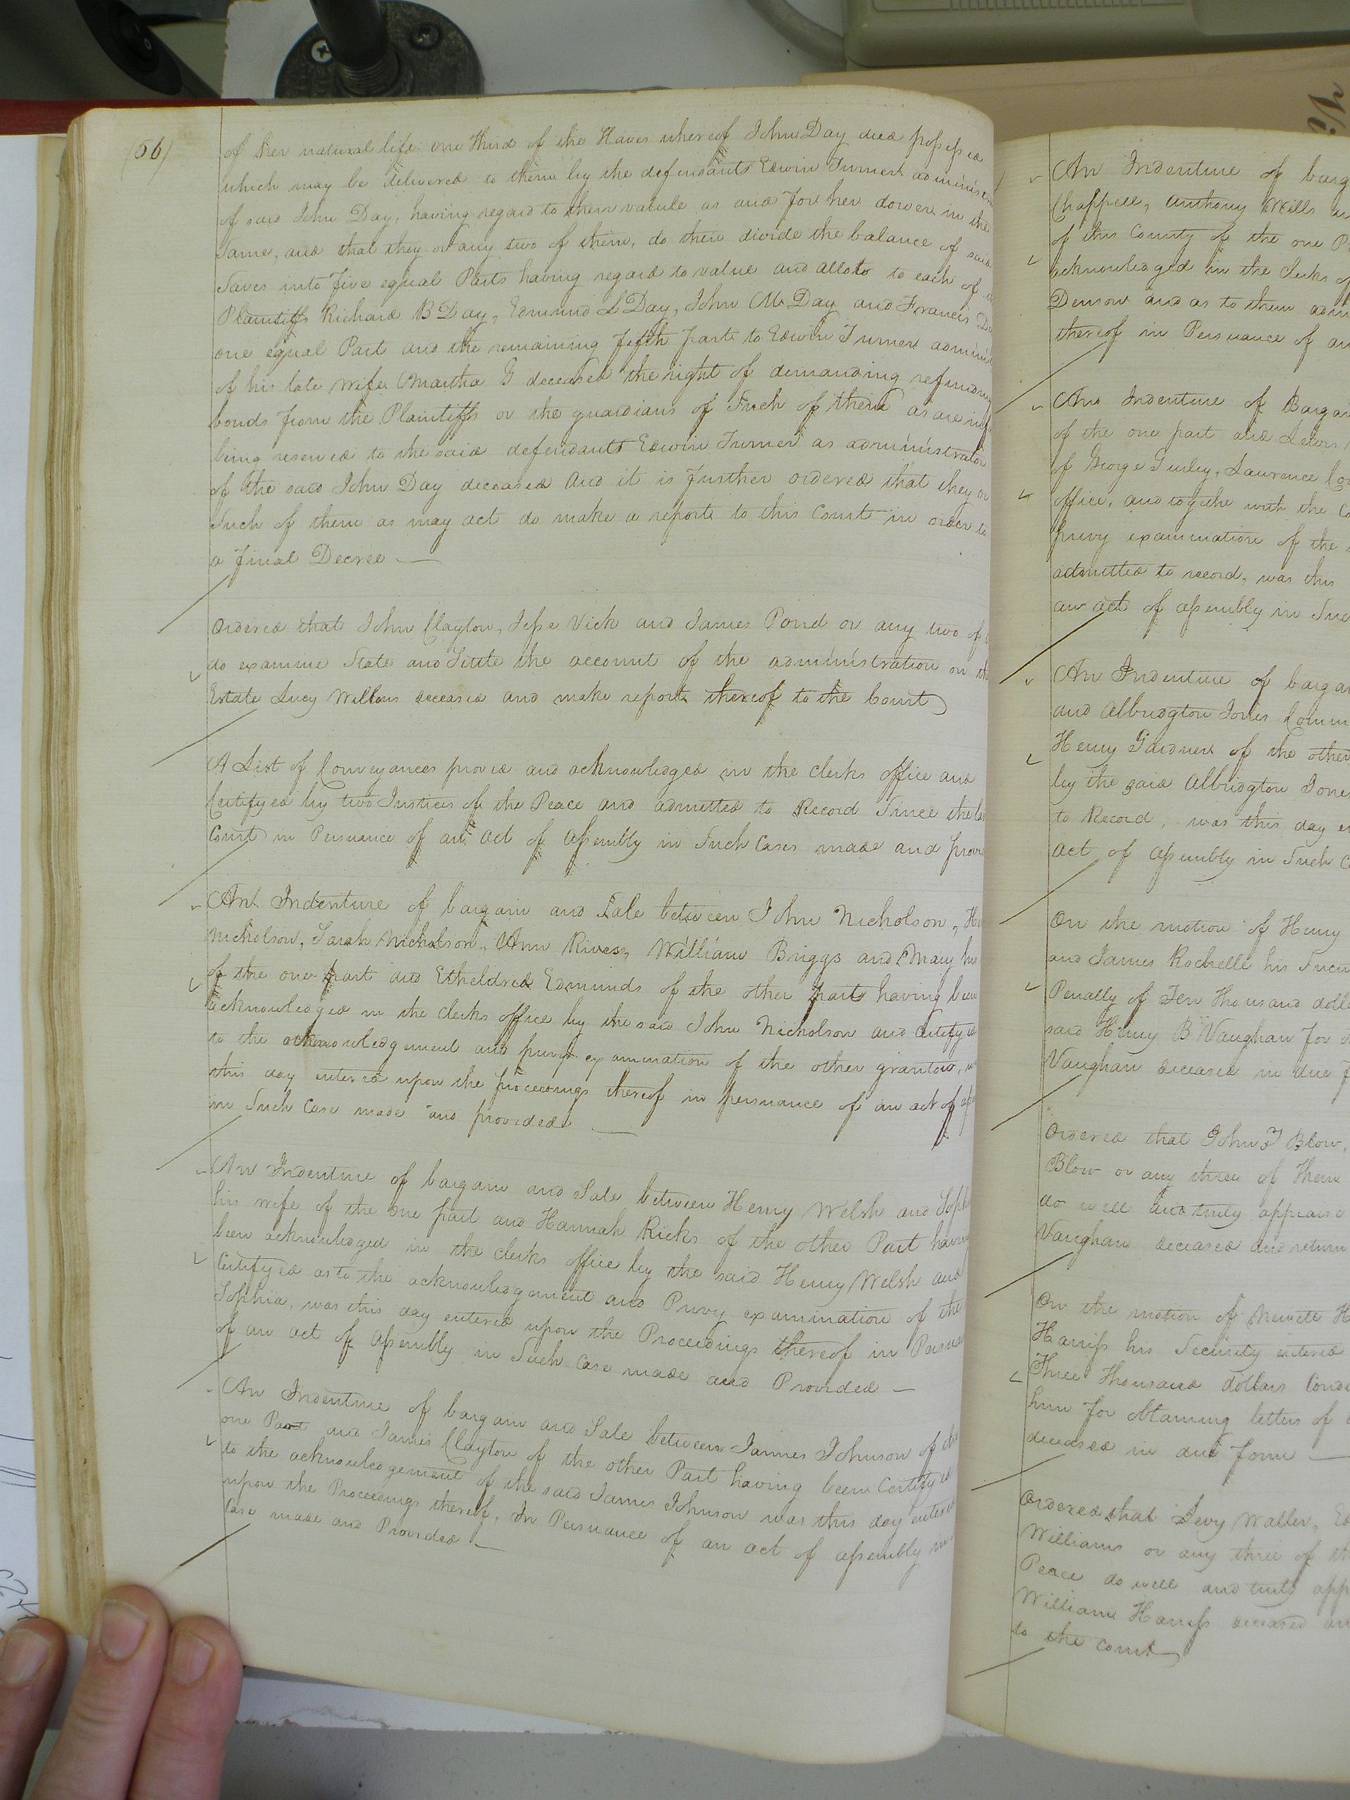 (56)
of her natural life one third of the slaves whereof John Day died possessed
which may be delivered to them by the defendants Edwin Turner
of said John Day, having regard to their valule as and for her dower in the
same, and that they or any two of them, do then divide the balance of said
slaves into five equal Parts having regard to value and allot to each of
Plaintiffs Richard B Day, Edmund D Day, John M Day and Francis
one equal Part and the remaining fifth part to Edwin Turner
of his late wife Martha G deceased the right of demanding
bonds from the Plaintiffs or the guardians of such of them as are
being reserved to the said defendants Edwin Turner as administrator
of the said John Day deceased and it is further ordered that they or
such of them as may act do make a report to this Court in order to
a final Decree —
Ordered that John Clayton, Jesse Vick and James Pond or any two of
do examine State and Settle the account of the administration on the
Estate Lucy deceased and make report thereof to the Court
A List of Conveyances proved and acknowledged in the clerks office and
Certifyed by two Justices of the Peace and admitted to Record Since the
Court in Persuance of an act of Assembly in Such Cases made and
An Indenture of bargain and Sale between John Nicholson,
Nicholson, Sarah Nicholson, Ann Rives, William Briggs and Mary his
of the one part and Etheldred Edmunds of the other part having been
acknowledged in the clerks office by the said John Nicholson and Certifyed
to the acknowledgement and privy examination of the other grantors,
this day entered upon the proceedings thereof in persuance of an act of
in Such Case made and provided —
An Indenture of bargain and Sale between Henry Welsh and
his wife of the one part and Hannah Ricks of the other Part having
been acknowledged in the clerks office by the said Henry Welsh and
Certifyed as to the acknowledgement and Privy examination of the
Sophia, was this day entered upon the Proceedings thereof in
of an act of Assembly in Such Case made and Provided —
An Indenture of bargain and Sale between James Johnson of the
one Part and James Clayton of the other Part having been Certifyed
to the acknowledgement of the said James Johnson was this day entered
upon the Proceedings thereof, In Persuance of an act of assembly in
Case made and Provided —
An Indenture of
Chappell, Anthony Wills
of this County of the one
acknowledged in the clerks
Denson and as to them
thereof in Persuance of
An Indenture of
of the one part and Lewis
of George Gurley, Lawrence
office, and togethe with the
privy examination of the
admitted to record, was this
an act of assembly in
An Indenture of
and Albridgton Jones
Henry Gardner of the other
by the said Albridgton
to Record, was this day
act of assembly in Such
On the motion of Henry
and James Rochelle his
Penalty of Ten thousand
said Henry B Vaughan for
Vaughan deceased in due
Ordered that John T Blow,
Blow or any three of them
do well and truly appraise
Vaughan deceased and return
On the motion of
Harriss his Security entered
Three thousand dollars
him for obtaining letters of
deceased in due form —
Ordered that Levy Waller,
Williams or any three of
Peace do well and truly
William Harriss deceased
to the court